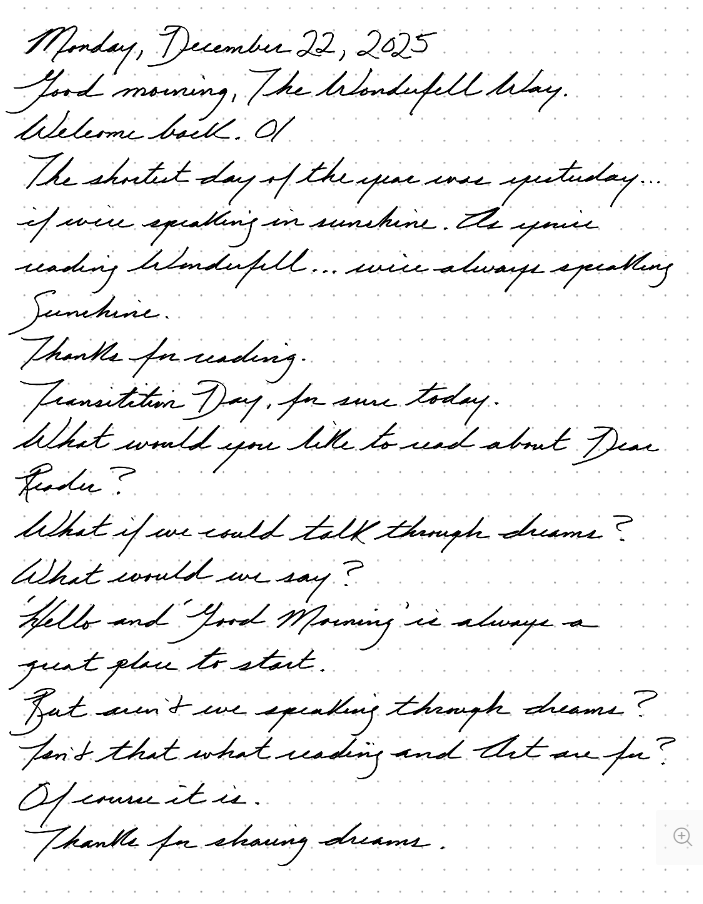 Monday, December 22, 2025
Good morning, The Wonderfell Way.
Welcome back. 01
The shortest day of the year was yesterday...
if we're speaking in sunshine. As you're
reading Wonderfell... we're always speaking
Sunshine.
Thanks for reading.
Transitition Day, for sure today.
What would you like to read about Dear
Reader?
What if we could talk through dreams?
What would we say?
'Hello and 'Good Morning' is always a
great place to start.
But aren't we speaking through dreams?
Isn't that what reading and Art are for?
Of course it is.
Thanks for sharing dreams.